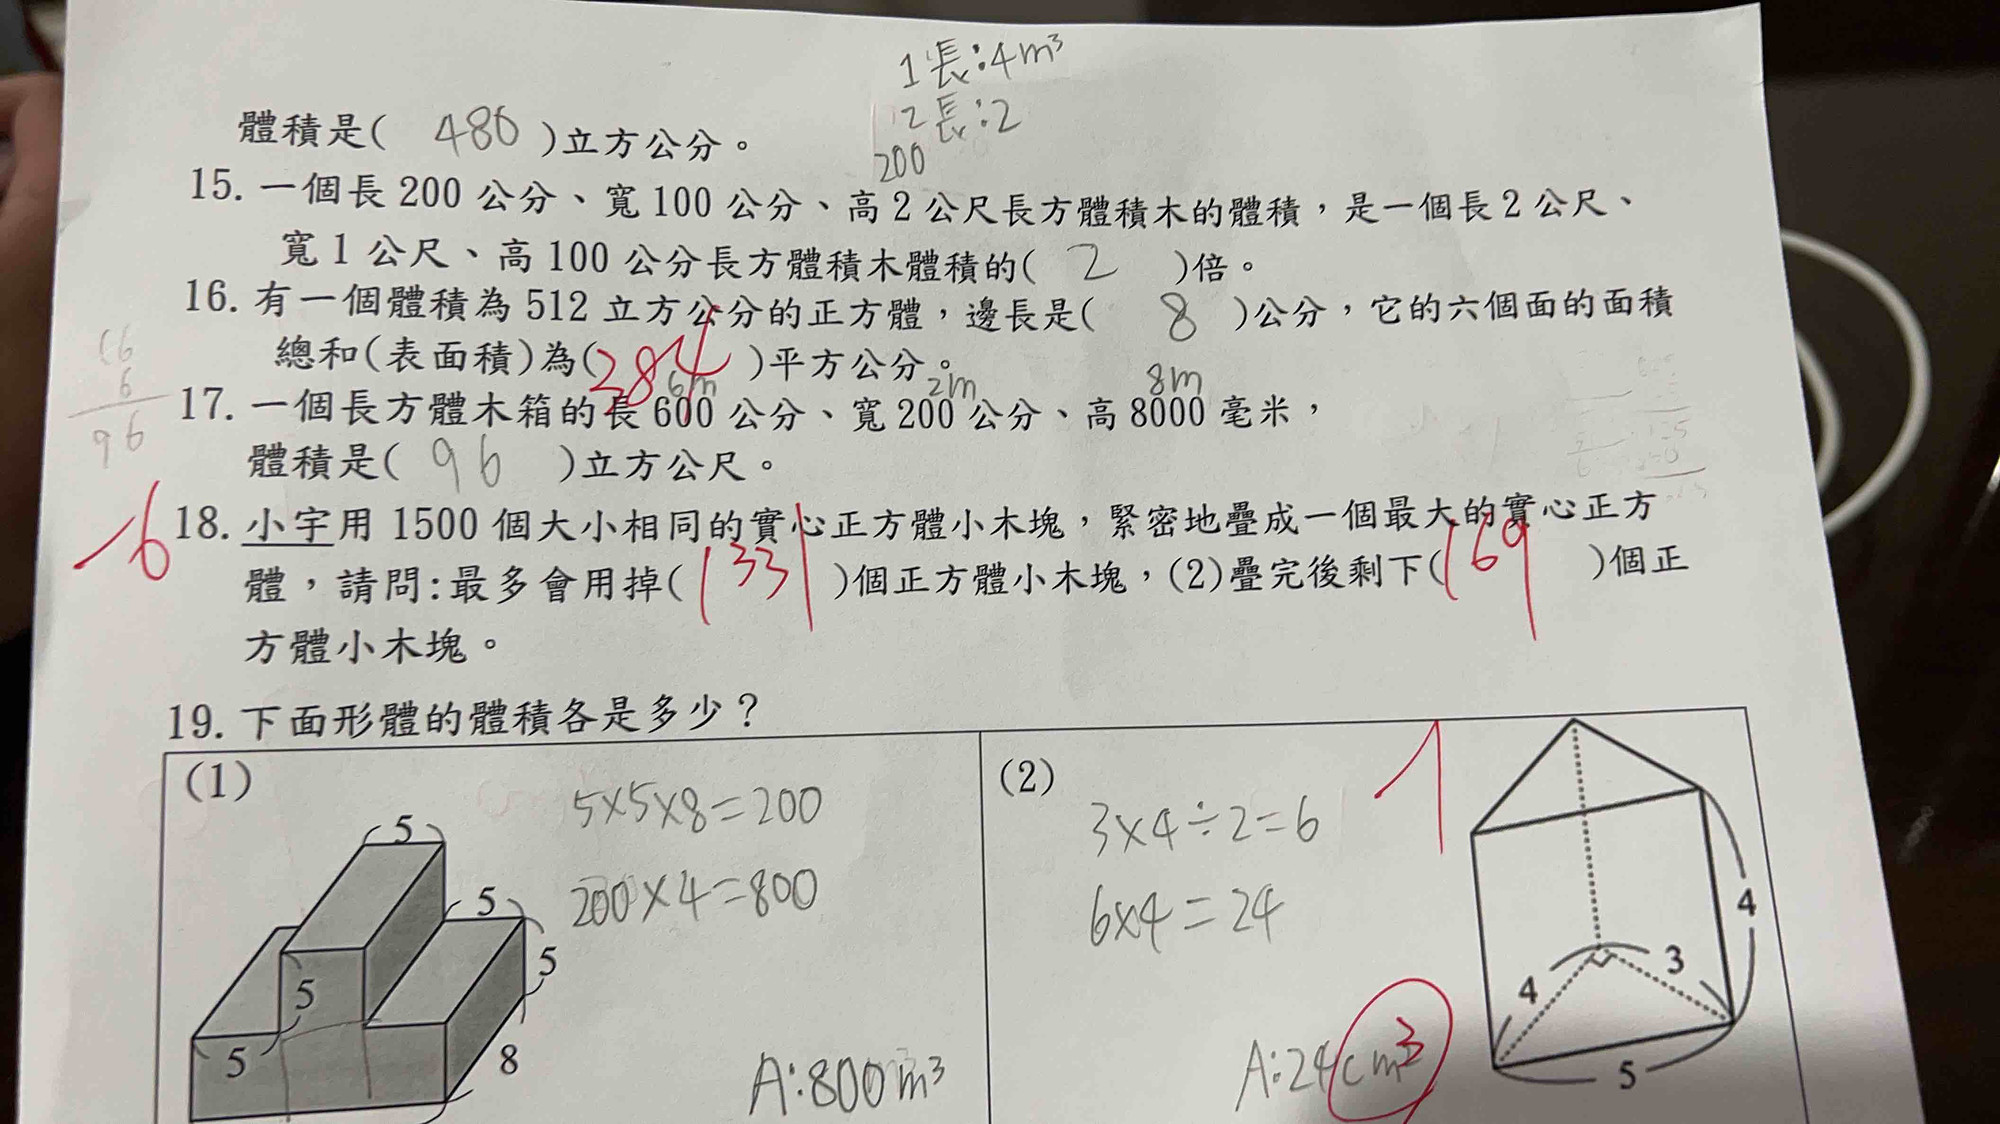 1長:4m³
2長:2
200
體積是( 480 )立方公分。
15. 一個長 200 公分、寬 100 公分、高 2 公尺長方體積木的體積,是一個長 2 公尺、
寬 1 公尺、高 100 公分長方體積木體積的( 2 )倍。
16. 有一個體積為 512 立方公分的正方體,邊長是( 8 )公分,它的六個面的面積
總和(表面積)為( 284 )平方公分。
16
6
96
6m 2m 8m
17. 一個長方體木箱的長 600 公分、寬 200 公分、高 8000 毫米,
體積是( 96 )立方公尺。
-6
18. 小宇用 1500 個大小相同的實心正方體小木塊,緊密地疊成一個最大的實心正方
體,請問:最多會用掉( 1331 )個正方體小木塊,(2)疊完後剩下( 169 )個正
方體小木塊。
19. 下面形體的體積各是多少?
(1)
5×5×8=200
200×4=800
5
5
5
5
5
8
A:800m³
(2)
3×4÷2=6
6×4=24
1
4
3
4
5
A:24cm³